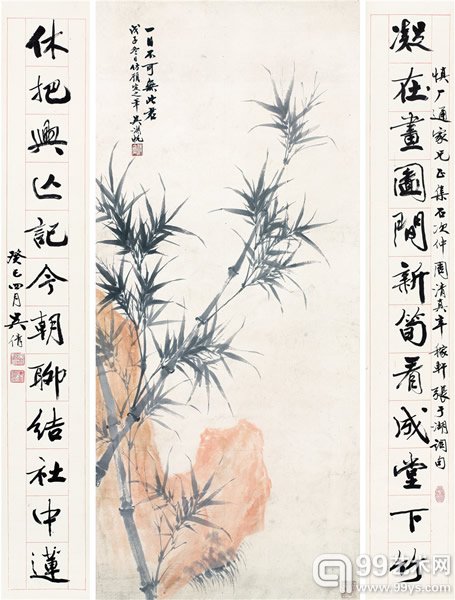 凝在畫圖間新筍看成堂下竹
慎厂通家兄正集石次仲周清真辛稼軒張于湖詞句
一日不可無此君
戊子冬日仿顧定之筆吳湖帆
休把興亡記今朝聊結社中蓮
癸巳四月吳倩
99艺术网
www.99ys.com